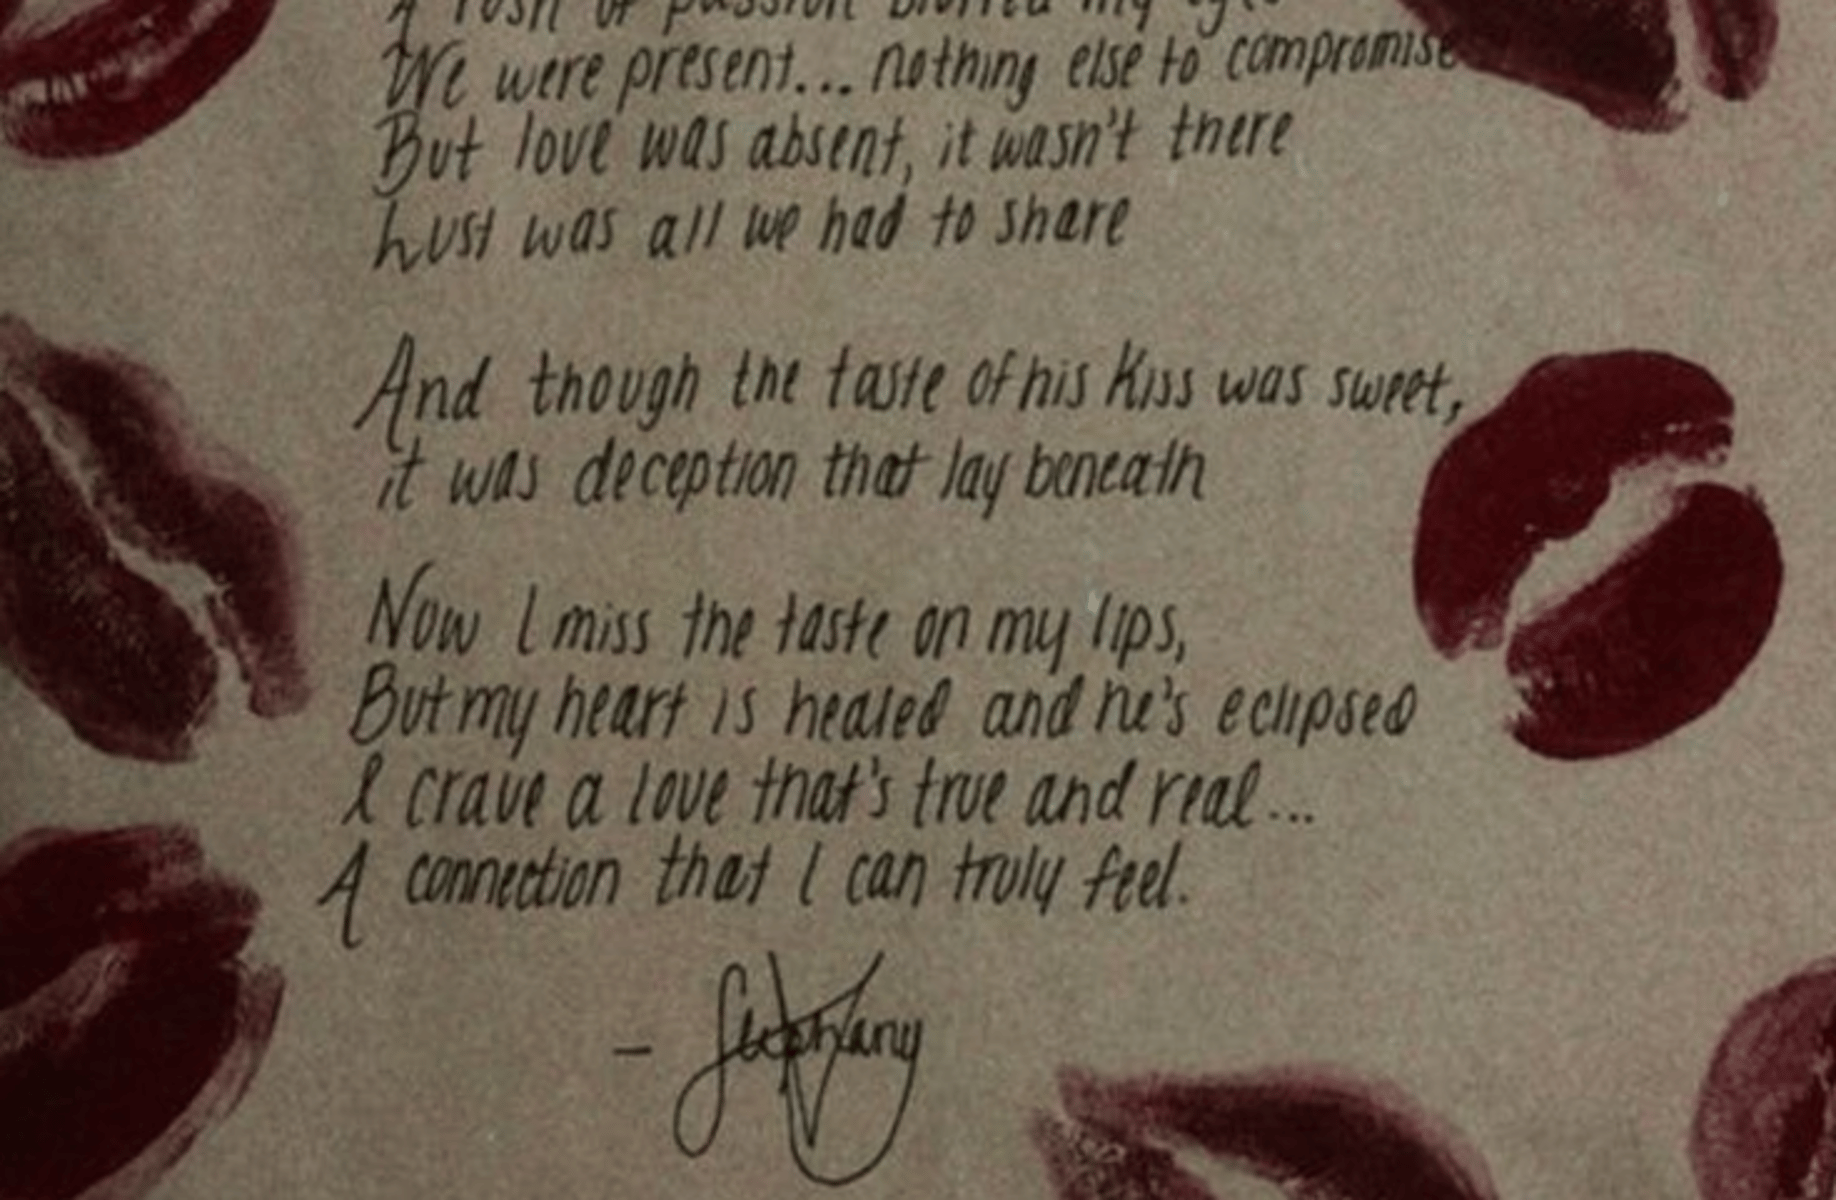 A rush of passion blurred my eyes
We were present... nothing else to compromise
But love was absent, it wasn't there
Lust was all we had to share
And though the taste of his Kiss was sweet,
it was deception that lay beneath
Now I miss the taste on my lips,
But my heart is healed and he's eclipsed
I crave a love that's true and real...
A connection that I can truly feel.
- Stephany